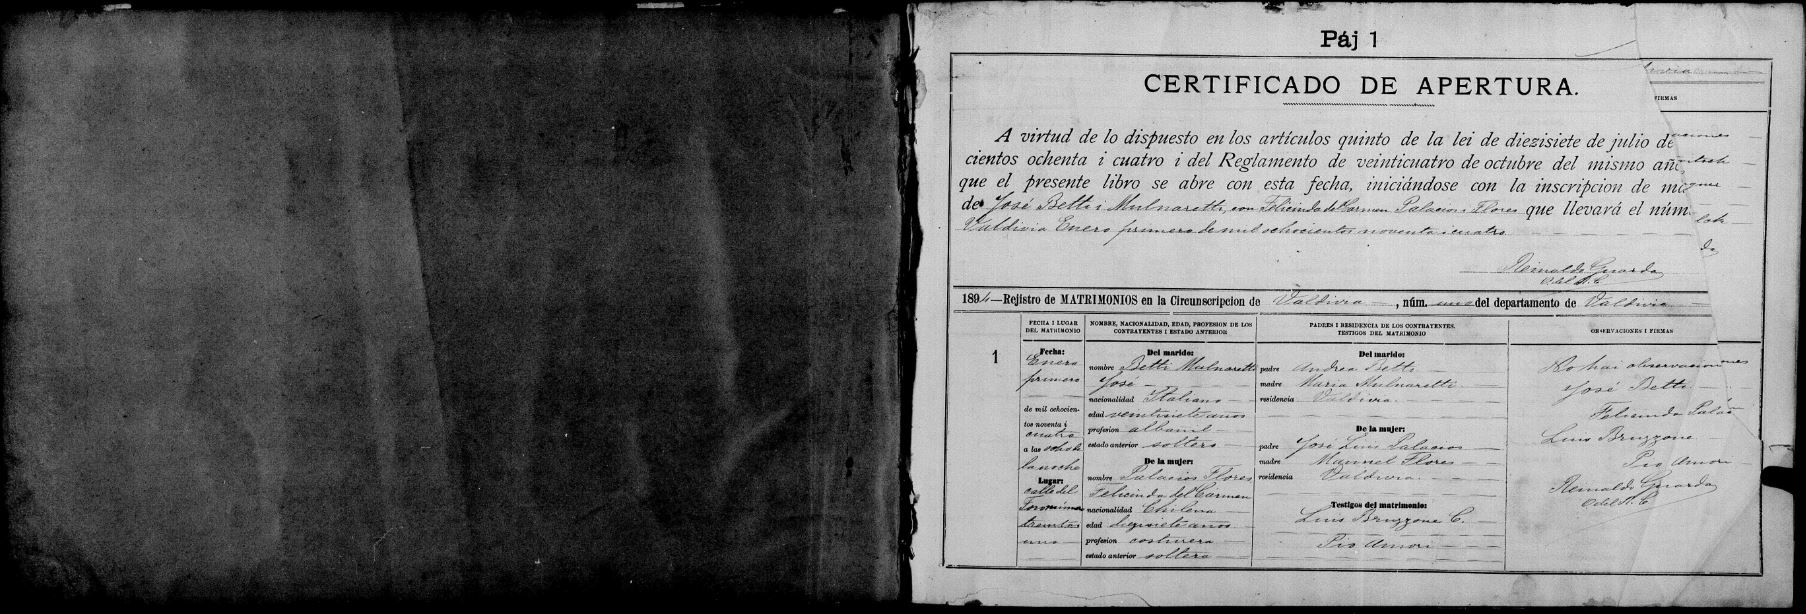 Páj 1
CERTIFICADO DE APERTURA.
FIRMAS
A virtud de lo dispuesto en los artículos quinto de la lei de diezisiete de julio de
cientos ochenta i cuatro i del Reglamento de veinticuatro de octubre del mismo año
que el presente libro se abre con esta fecha, iniciándose con la inscripcion de
de José Betti i Mulnaretti, con Felicinda del Carmen Palacios i Flores que llevará el núm
Valdivia Enero primero de mil ochocientos noventa i cuatro
Reinaldo Guarda
O del R. C.
1894—Rejistro de MATRIMONIOS en la Circunscripcion de Valdivia, núm. uno del departamento de Valdivia
FECHA I LUGAR
DEL MATRIMONIO
NOMBRE, NACIONALIDAD, EDAD, PROFESION DE LOS
CONTRAYENTES I ESTADO ANTERIOR
PADRES I RESIDENCIA DE LOS CONTRAYENTES.
TESTIGOS DEL MATRIMONIO
OBSERVACIONES I FIRMAS
1
Fecha:
Enero
primero
de mil ochocien-
tos noventa i
cuatro
a las ocho de
la noche
Lugar:
calle del
treinta i
uno
Del marido:
nombre Betti Mulnaretti
José
nacionalidad Italiano
edad veintisiete años
profesion albañil
estado anterior soltero
De la mujer:
nombre Palacios Flores
Felicinda del Carmen
nacionalidad Chilena
edad diezisiete años
profesion costurera
estado anterior soltera
Del marido:
padre Andrea Betti
madre Maria Mulnaretti
residencia Valdivia
De la mujer:
padre José Luis Palacios
madre Manuel Flores
residencia Valdivia
Testigos del matrimonio:
Luis Bruzzone C.
Pio Amori
No hai observaciones
José Betti
Felicinda Palac
Luis Bruzzone
Pio Amori
Reinaldo Guarda
O del R. C.